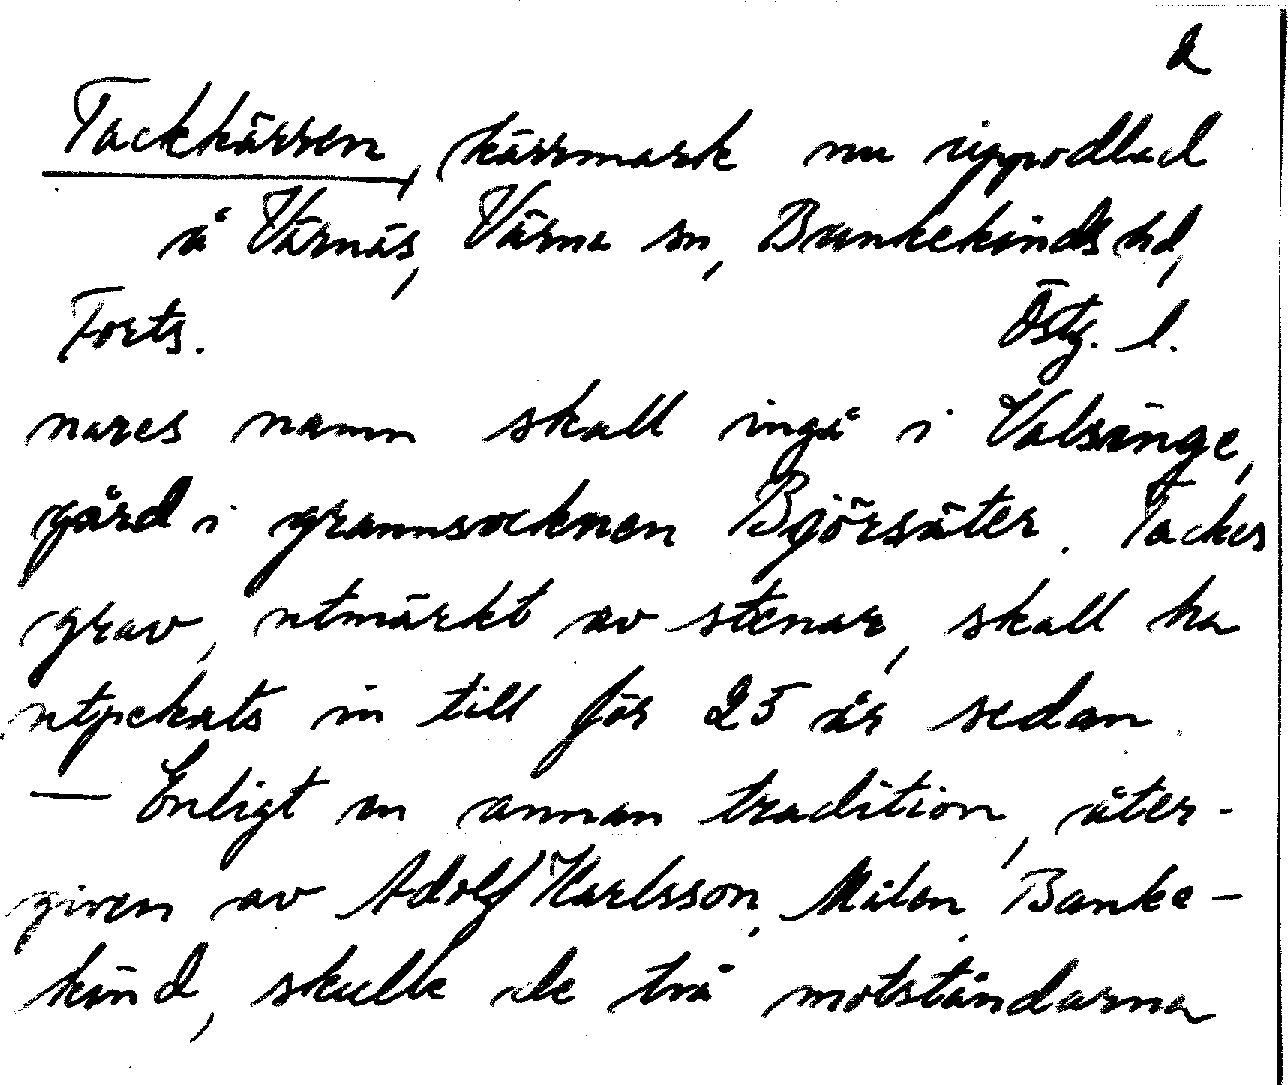 2
Tackkärren, kärrmark nu uppodlad
å Värnäs, Värna sn, Bankekinds hd,
Forts. Östg. l.
nares namn skall ingå i Valsänge,
gård i grannsocknen Björsäter. Tackes
grav, utmärkt av stenar, skall ha
utpekats in till för 25 år sedan.
— Enligt en annan tradition, åter-
given av Adolf Karlsson, Målen, Banke-
kind, skulle de två motståndarna